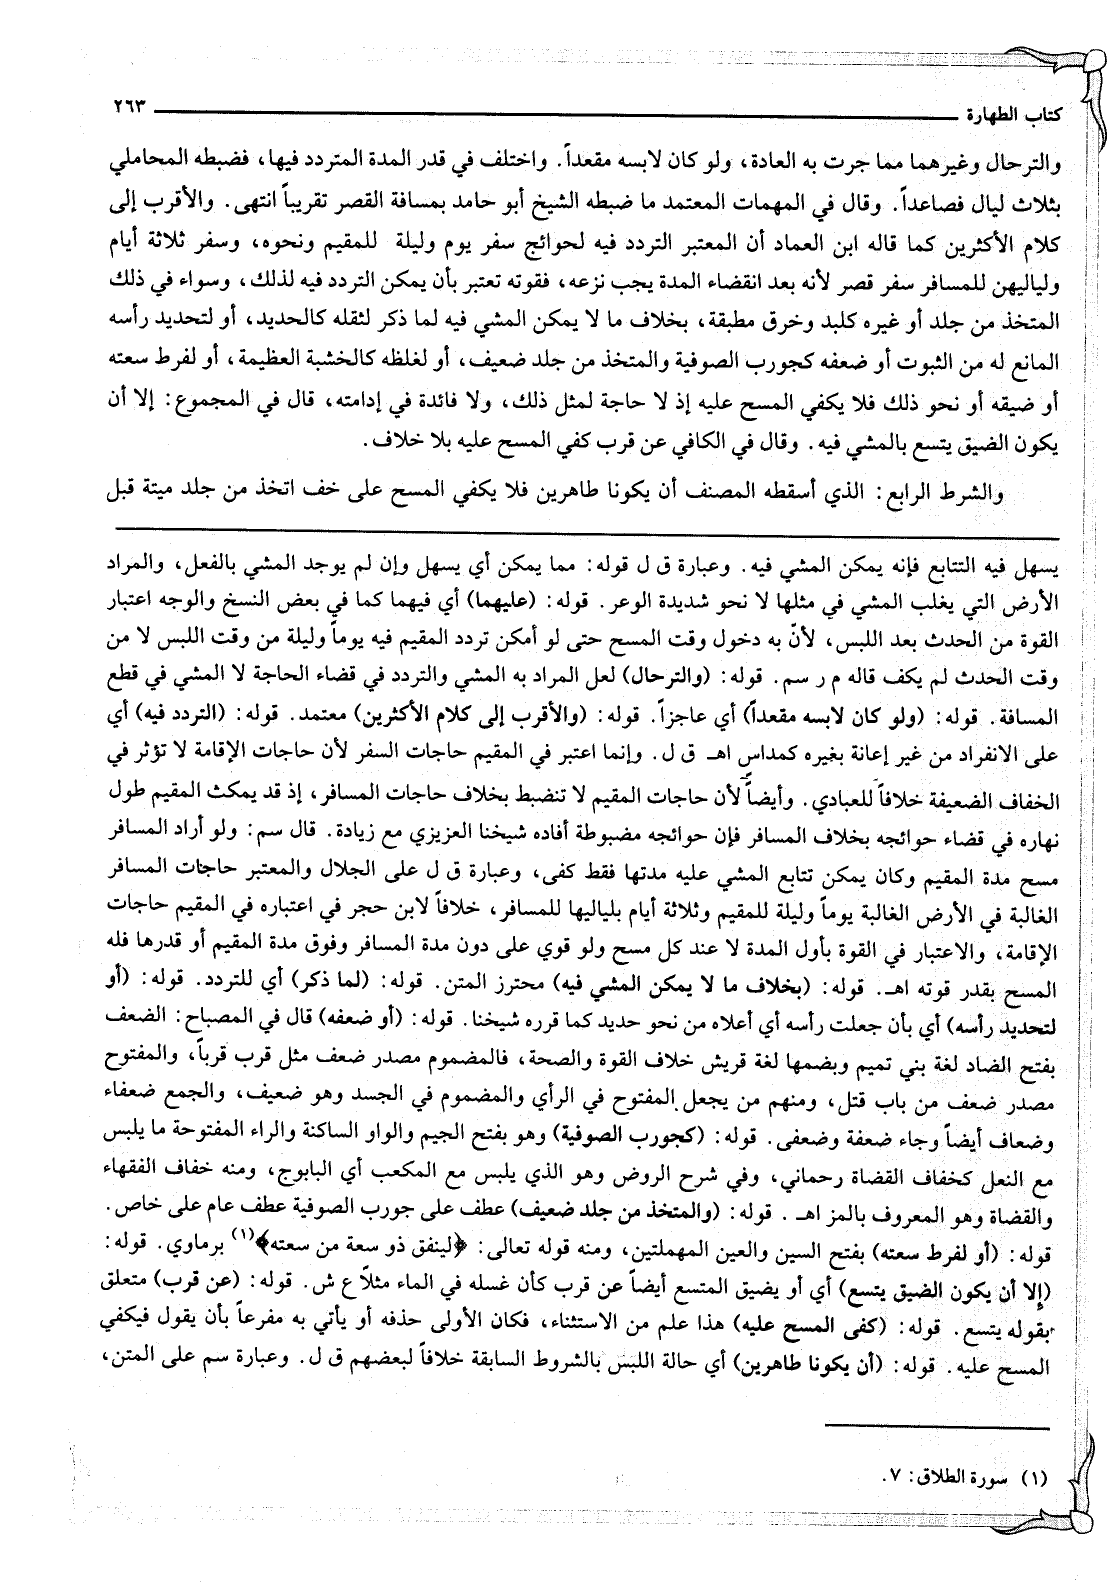 كتاب الطهارة ٢٦٣
والترحال وغيرهما مما جرت به العادة، ولو كان لابسه مقعداً. واختلف في قدر المدة المتردد فيها، فضبطه المحاملي
بثلاث ليال فصاعداً. وقال في المهمات المعتمد ما ضبطه الشيخ أبو حامد بمسافة القصر تقريباً انتهى. والأقرب إلى
كلام الأكثرين كما قاله ابن العماد أن المعتبر التردد فيه لحوائج سفر يوم وليلة للمقيم ونحوه، وسفر ثلاثة أيام
ولياليهن للمسافر سفر قصر لأنه بعد انقضاء المدة يجب نزعه، فقوته تعتبر بأن يمكن التردد فيه لذلك، وسواء في ذلك
المتخذ من جلد أو غيره كلبد وخرق مطبقة، بخلاف ما لا يمكن المشي فيه لما ذكر لثقله كالحديد، أو لتحديد رأسه
المانع له من الثبوت أو ضعفه كجورب الصوفية والمتخذ من جلد ضعيف، أو لغلظه كالخشبة العظيمة، أو لفرط سعته
أو ضيقه أو نحو ذلك فلا يكفي المسح عليه إذ لا حاجة لمثل ذلك، ولا فائدة في إدامته، قال في المجموع: إلا أن
يكون الضيق يتسع بالمشي فيه. وقال في الكافي عن قرب كفي المسح عليه بلا خلاف.
والشرط الرابع: الذي أسقطه المصنف أن يكونا طاهرين فلا يكفي المسح على خف اتخذ من جلد ميتة قبل
يسهل فيه التتابع فإنه يمكن المشي فيه. وعبارة ق ل قوله: مما يمكن أي يسهل وإن لم يوجد المشي بالفعل، والمراد
الأرض التي يغلب المشي في مثلها لا نحو شديدة الوعر. قوله: (عليهما) أي فيهما كما في بعض النسخ والوجه اعتبار
القوة من الحدث بعد اللبس، لأنّ به دخول وقت المسح حتى لو أمكن تردد المقيم فيه يوماً وليلة من وقت اللبس لا من
وقت الحدث لم يكف قاله م ر سم. قوله: (والترحال) لعل المراد به المشي والتردد في قضاء الحاجة لا المشي في قطع
المسافة. قوله: (ولو كان لابسه مقعداً) أي عاجزاً. قوله: (والأقرب إلى كلام الأكثرين) معتمد. قوله: (التردد فيه) أي
على الانفراد من غير إعانة بغيره كمداس اهـ ق ل. وإنما اعتبر في المقيم حاجات السفر لأن حاجات الإقامة لا تؤثر في
الخفاف الضعيفة خلافاً للعبادي. وأيضاً لأن حاجات المقيم لا تنضبط بخلاف حاجات المسافر، إذ قد يمكث المقيم طول
نهاره في قضاء حوائجه بخلاف المسافر فإن حوائجه مضبوطة أفاده شيخنا العزيزي مع زيادة. قال سم: ولو أراد المسافر
مسح مدة المقيم وكان يمكن تتابع المشي عليه مدتها فقط كفى، وعبارة ق ل على الجلال والمعتبر حاجات المسافر
الغالبة في الأرض الغالبة يوماً وليلة للمقيم وثلاثة أيام بلياليها للمسافر، خلافاً لابن حجر في اعتباره في المقيم حاجات
الإقامة، والاعتبار في القوة بأول المدة لا عند كل مسح ولو قوي على دون مدة المسافر وفوق مدة المقيم أو قدرها فله
المسح بقدر قوته اهـ. قوله: (بخلاف ما لا يمكن المشي فيه) محترز المتن. قوله: (لما ذكر) أي للتردد. قوله: (أو
لتحديد رأسه) أي بأن جعلت رأسه أي أعلاه من نحو حديد كما قرره شيخنا. قوله: (أو ضعفه) قال في المصباح: الضعف
بفتح الضاد لغة بني تميم وبضمها لغة قريش خلاف القوة والصحة، فالمضموم مصدر ضعف مثل قرب قرباً، والمفتوح
مصدر ضعف من باب قتل، ومنهم من يجعل المفتوح في الرأي والمضموم في الجسد وهو ضعيف، والجمع ضعفاء
وضعاف أيضاً وجاء ضعفة وضعفى. قوله: (كجورب الصوفية) وهو بفتح الجيم والواو الساكنة والراء المفتوحة ما يلبس
مع النعل كخفاف القضاة رحماني، وفي شرح الروض وهو الذي يلبس مع المكعب أي البابوج، ومنه خفاف الفقهاء
والقضاة وهو المعروف بالمز اهـ. قوله: (والمتخذ من جلد ضعيف) عطف على جورب الصوفية عطف عام على خاص.
قوله: (أو لفرط سعته) بفتح السين والعين المهملتين، ومنه قوله تعالى: ﴿لينفق ذو سعة من سعته﴾(١) برماوي. قوله:
(إلا أن يكون الضيق يتسع) أي أو يضيق المتسع أيضاً عن قرب كأن غسله في الماء مثلاً ع ش. قوله: (عن قرب) متعلق
بقوله يتسع. قوله: (كفى المسح عليه) هذا علم من الاستثناء، فكان الأولى حذفه أو يأتي به مفرعاً بأن يقول فيكفي
المسح عليه. قوله: (أن يكونا طاهرين) أي حالة اللبس بالشروط السابقة خلافاً لبعضهم ق ل. وعبارة سم على المتن،
(١) سورة الطلاق: ٧.